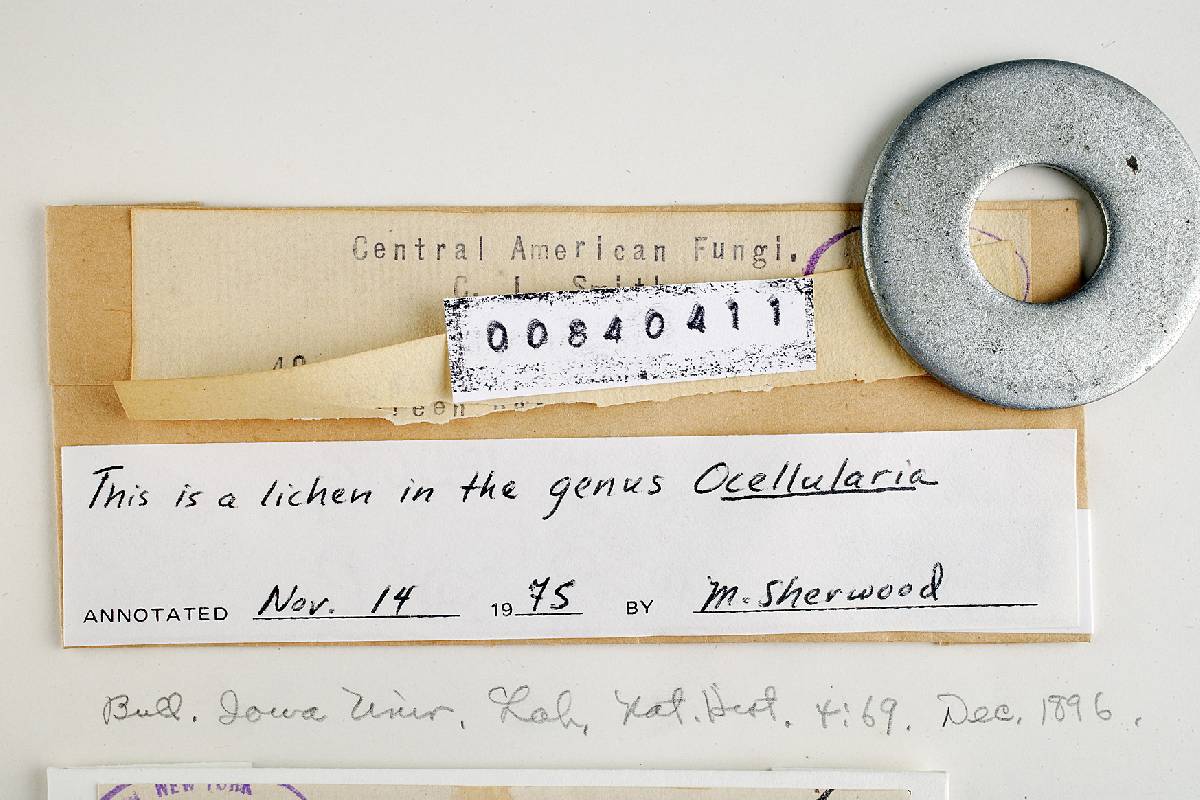 Central American Fungi.
C. L. Smith
00840411
This is a lichen in the genus Ocellularia
ANNOTATED Nov. 14 1975 BY M. Sherwood
Bull. Iowa Univ. Lab. Nat. Hist. 4:69. Dec. 1896.
NEW YORK